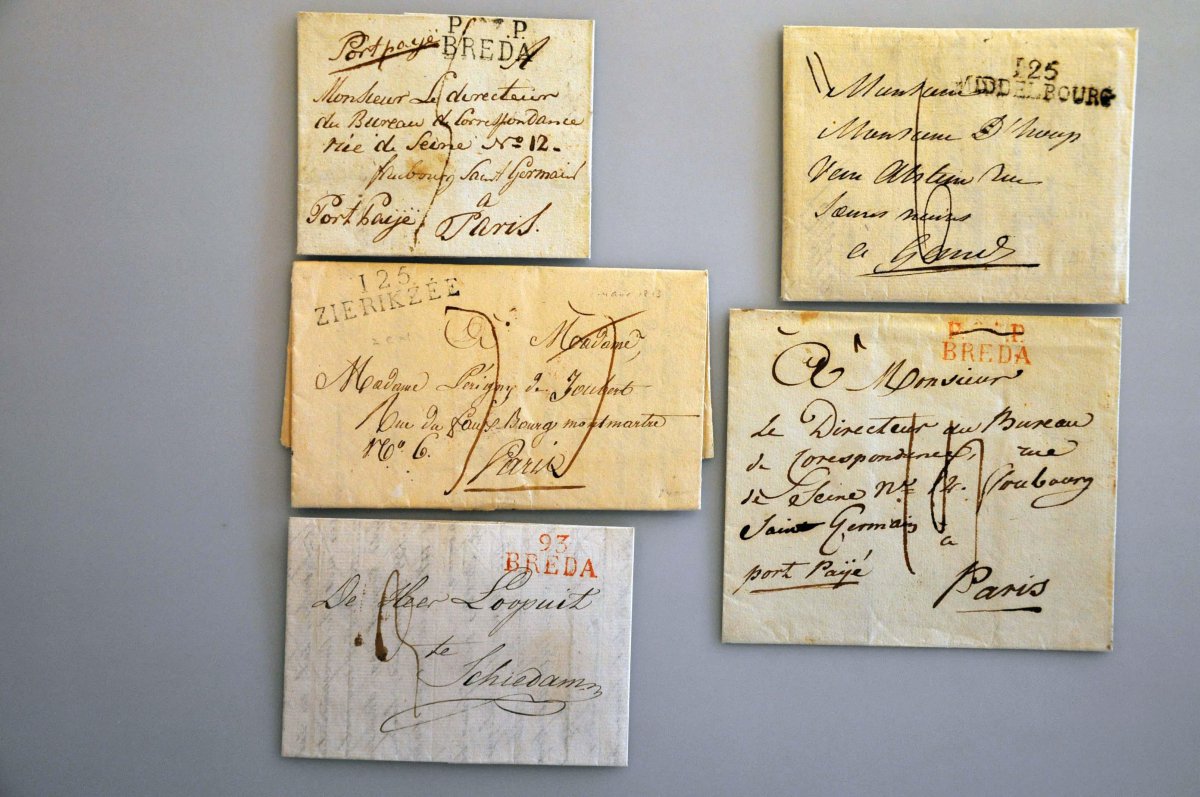 P. P.
BREDA
Port payé
A
Monsieur Le directeur
du Bureau de Correspondance
rüe de Seine Nº 12.
faubourg Saint Germain
a
Port Paijé Paris.
125
MIDDELBOURG
Monsieur
Monsieur D'hoop
Van Alstein rue
Sœurs noires
a Gand
125
ZIERIKZÉE
A Madame,
Madame Perigny de Joubert
Rue du faux Bourg montmartre
Nº 6.
Paris
P. P.
BREDA
A Monsieur
Le Directeur du Bureau
de Corespondence, rue
de Seine Nº 12. Foubourg
Saint Germain
a
port Paijé
Paris
93
BREDA
De Heer Loopuit
te
Schiedam